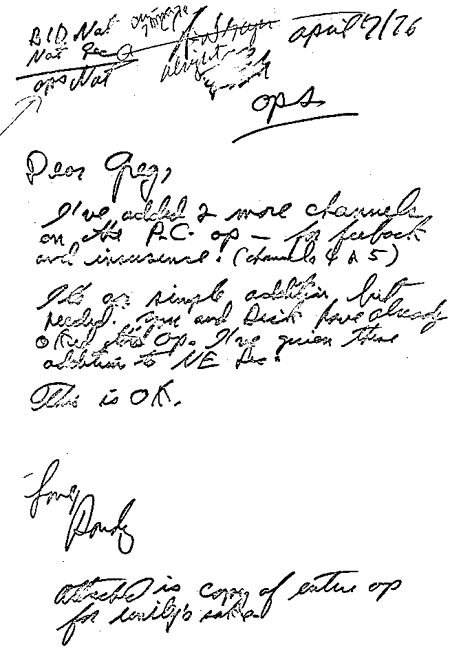 BID Nat
Nat Sec
ops Nat
april 7/76
ops
Dear Greg,
I've added 2 more channels
on the P.C. op — for feeback
and insurance! (channels 4 & 5)
It's a simple addition but
needed. and Dick have already
OKed this op. I've given these
addition to NE Sec.
This is OK.
Love,
Randy
attached is copy of entire op
for sake